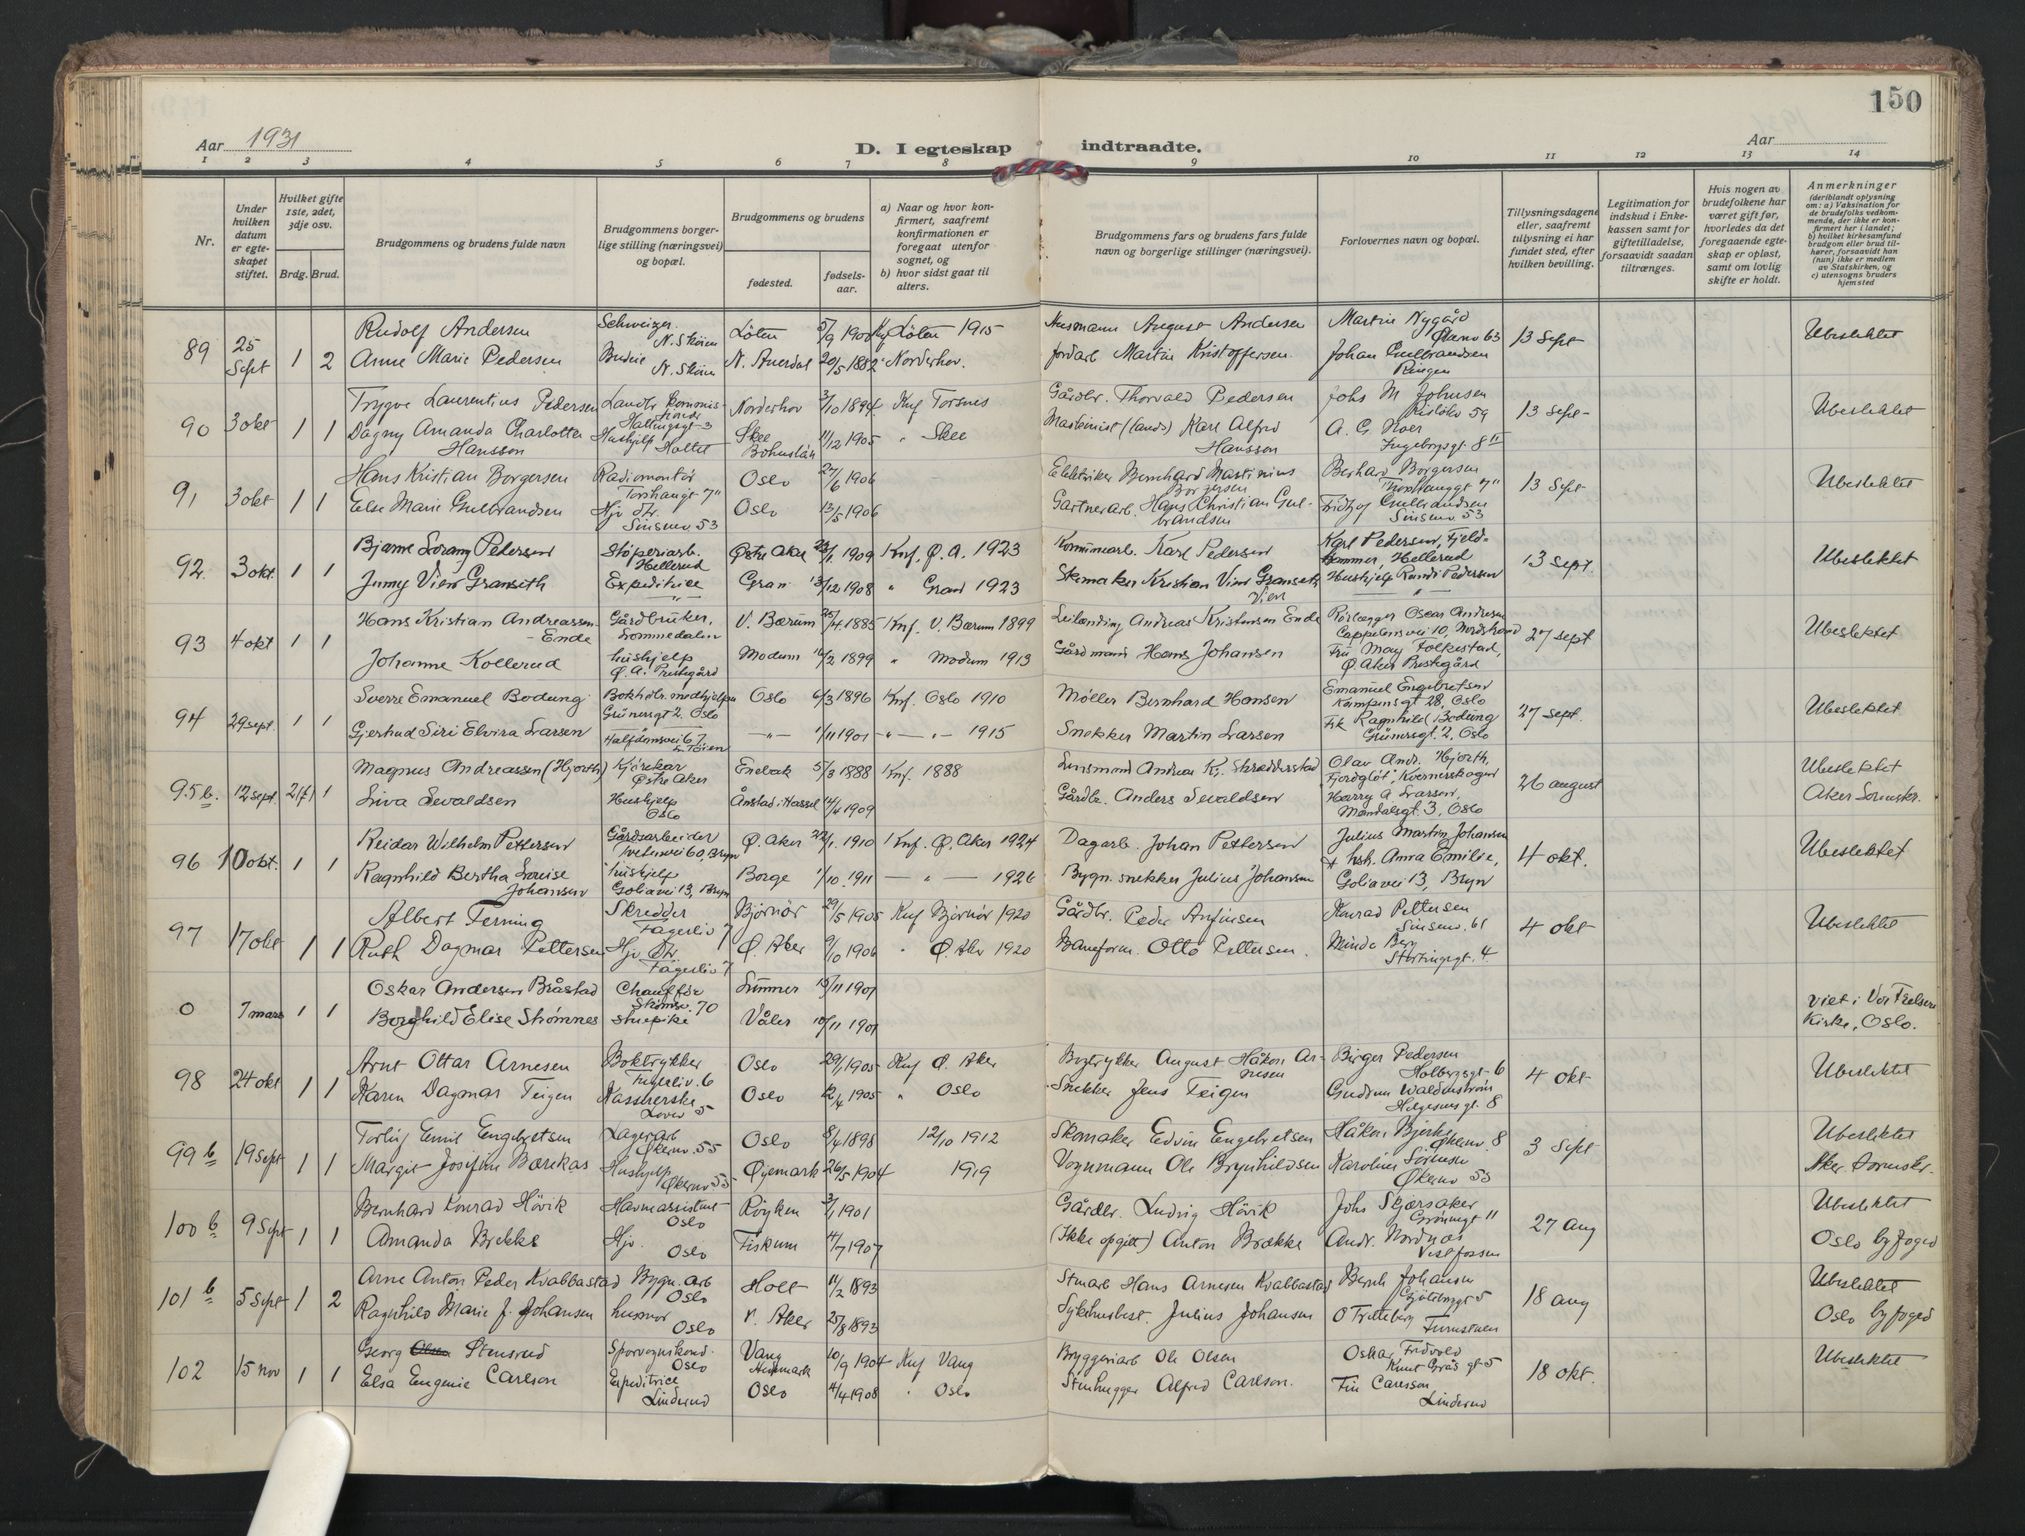 150
Aar 1931
D. I egteskap indtraadte.
Aar
1 2 3 4 5 6 7 8 9 10 11 12 13 14
Nr.
Under hvilken datum er egteskapet stiftet.
Hvilket gifte 1ste, 2det, 3dje osv.
Brdg. Brud.
Brudgommens og brudens fulde navn
Brudgommens borgerlige stilling (næringsvei) og bopæl.
Brudgommens og brudens
fødested.
fødselsaar.
a) Naar og hvor konfirmert, saafremt konfirmationen er foregaat utenfor sognet, og
b) hvor sidst gaat til alters.
Brudgommens fars og brudens fars fulde navn og borgerlige stillinger (næringsvei).
Forlovernes navn og bopæl.
Tillysningsdagene eller, saafremt tillysning ei har fundet sted, efter hvilken bevilling.
Legitimation for indskud i Enkekassen samt for giftetilladelse, forsaavidt saadan tiltrænges.
Hvis nogen av brudefolkene har været gift før, hvorledes da det foregaaende egteskap er opløst, samt om lovlig skifte er holdt.
Anmerkninger (deriblandt oplysning om: a) Vaksination for de brudefolks vedkommende, der ikke er konfirmert her i landet; b) hvilket kirkesamfund brudgom eller brud tilhører, forsaavidt han (hun) ikke er medlem av Statskirken, og c) utensogns bruders hjemsted
89 25 Sept 1 2
Rudolf Andersen Schweizer N. Skøien Løten 5/9 1900 Knf Løten 1915 Husmann August Andersen Martin Nygård Økernv 63 13 Sept Ubeslektet
Anne Marie Pedersen Budeie N. Skøien N. Aurdal 20/5 1882 " Norderhov. Jordarb Martin Kristoffersen. Johan Gulbrandsen Ringen
90 3 okt 1 1
Trygve Laurentius Pedersen Landbr. Hallingsgt 3 Norderhov 3/10 1894 Knf Torsnes Gårdbr. Thorvald Pedersen Johs M Johnsen Risløkv 59 13 Sept Ubeslektet
Dagny Amanda Charlotte Hansson Hushjelp Holtet Skee Bohuslän 11/12 1905 " Skee Maskinist (lands) Karl Alfred Hansson A. G Noer Ingeborgsgt. 8 II
91 3 okt 1 1
Hans Kristian Borgersen Radiomontør Torshaugt 7 II Oslo 27/6 1906 Elektriker Bernhard Martinius Borgersen Berhard Borgersen Torshauggt 7 II 13 Sept Ubeslektet
Else Marie Gulbrandsen Hjv dtr. Sinsenv 53 Oslo 13/5 1906 Gartnerarb. Hans Christian Gulbrandsen Fridtjof Gulbrandsen Sinsenv 53
92 3 okt. 1 1
Bjarne Lorang Pedersen Støperiarb. Hellerud Østre Aker 23/1 1909 Knf. Ø. A. 1923 Kommunearb. Karl Pedersen Karl Pedersen, Hellerud 13 sept. Ubeslektet
Jenny Vien Granseth Expeditrice — " — Gran 13/12 1908 " Gran 1923 Skomaker Kristian Vien Granseth Hushjelp Randi Pedersen — " —
93 4 okt 1 1
Hans Kristian Andreassen-Ende Gårdbruker, Lommedalen V. Bærum 25/4 1885 Knf. V. Bærum 1899 Leilending Andreas Kristensen Ende Rørlegger Oscar Andresen Cappelensvei 10, Nordstrand 27 sept Ubeslektet
Johanne Kollerud hushjelp Ø. A. Prestegård Modum 16/2 1899 " Modum 1913 Gårdmann Hans Johansen Fru May Folkestad, Ø. Aker Prestegård
94 29 sept. 1 1
Sverre Emanuel Bodung Bokholdermedhjelper Grünersgt 2, Oslo Oslo 6/3 1896 Knf. Oslo 1910 Møller Bernhard Hansen Emanuel Engebretsen Kampensgt 28, Oslo 27 sept. Ubeslektet
Gjerhud Siri Elvira Larsen Halfdansvei 67 — " — 1/11 1901 " — " — 1915 Snekker Martin Larsen Frk Ragnhild Bodung Grünersgt. 2, Oslo
95 b. 12 sept. 2 (f) 1
Magnus Andreassen (Hjorth) Kjørekar Østre Aker Enebak 5/3 1888 Knf. 1888 Olav And. Hjorth, 26 august Ubeslektet
Siva Sevaldsen Hushjelp Oslo Ånstad i Hassel 12/4 1909 Gårdbr. Anders Sevaldsen Harry A Larsen, Mandalsgt. 3, Oslo Aker Sorenskr.
96 10 okt. 1 1
Reidar Wilhelm Pettersen Gårdsarbeider Tvetenvei 60, Bryn Ø. Aker 22/1 1910 Knf. Ø. Aker 1924 Dagarb. Johan Pettersen Julius Martin Johansen 4 okt. Ubeslektet
Ragnhild Bertha Louise Johansen hushjelp Goliavei 13, Bryn Borge 1/10 1911 — " — 1926 Bygn. snekker Julius Johansen + hsh. Anna Emilie, Goliavei 13, Bryn
97 17 okt 1 1
Albert Ferning Skredder Fagerliv 7 Bjørnør 29/5 1905 Knf Bjørnør 1920 Gårdbr. Peder Anfinsen Konrad Pettersen Sinsenv. 61 4 okt Ubeslektet
Ruth Dagmar Pettersen Hjv dtr. Fagerliv 7 Ø. Aker 9/10 1906 " Ø. Aker 1920 Baneform. Otto Pettersen. Minda Berg Stortingsgt. 4.
0 7 mars 1 1
Oskar Andersen Bråstad Chauffør Strømsv. 70 15/11 1901 Viet i Vor Frelsers Kirke, Oslo.
Borghild Elise Strømnes stuepike Våler 10/11 1901
98 24 okt 1 1
Arnt Ottar Arnesen Boktrykker Fagerliv. 6 Oslo 29/1 1905 Knf Ø. Aker Boktrykker August Håkon Arnesen Birger Pedersen Holbergsgt 6 4 okt Ubeslektet
Karen Dagmar Teigen Kassererske Oslo 2/4 1905 " Oslo Snekker Jens Teigen Gudrun Waldenstrøm Helgesens gt. 8
99 b 19 Sept 1 1
Torleif Emil Engebretsen Lagerarb Økernv 55 Oslo 8/4 1898 12/10 1912 Skomaker Edvin Engebretsen Håkon Bjerke Økernv. 8 3 Sept Ubeslektet
Margit Josefine Bærekas Hushjelp Økernv 55 Øymark 26/5 1904 1919 Vognmann Ole Brynhildsen Karoline Sørensen Økernv 53 Aker Sorenskr.
100 b 9 Sept 1 1
Bernhard Konrad Høvik Havneassistent Oslo Røyken 3/1 1901 Gårdbr. Ludvig Høvik Johs Skjærsaker Grønnegt 11 27 aug Ubeslektet
Amanda Brekke Hjv. Oslo Fiskum 4/7 1907 (Ikke opgitt) Anton Brække Andr. Nordnæs Vestfossen Oslo byfoged
101 b 5 Sept 1 2
Arne Anton Peder Kvabbastad Bygn. arb Oslo Holt 11/2 1893 Stuarb Hans Arnesen Kvabbastad Bernh Johansen 18 aug Ubeslektet
Ragnhild Marie f. Johansen husmor Oslo V. Aker 25/8 1893 Julius Johansen O Fritteberg Furustuen Oslo byfoged
102 15 nov 1 1
Georg Stensrud Sporvognskond. Oslo Vang Hedmark 10/9 1904 Knf Vang Bryggeriarb Ole Olsen Oskar Fridvold Knut Grås gt 5 18 okt. Ubeslektet
Elsa Eugenie Carlson Expeditrice Linderud Oslo 4/4 1908 " Oslo Stenhugger Alfred Carlson. Carlsson Linderud